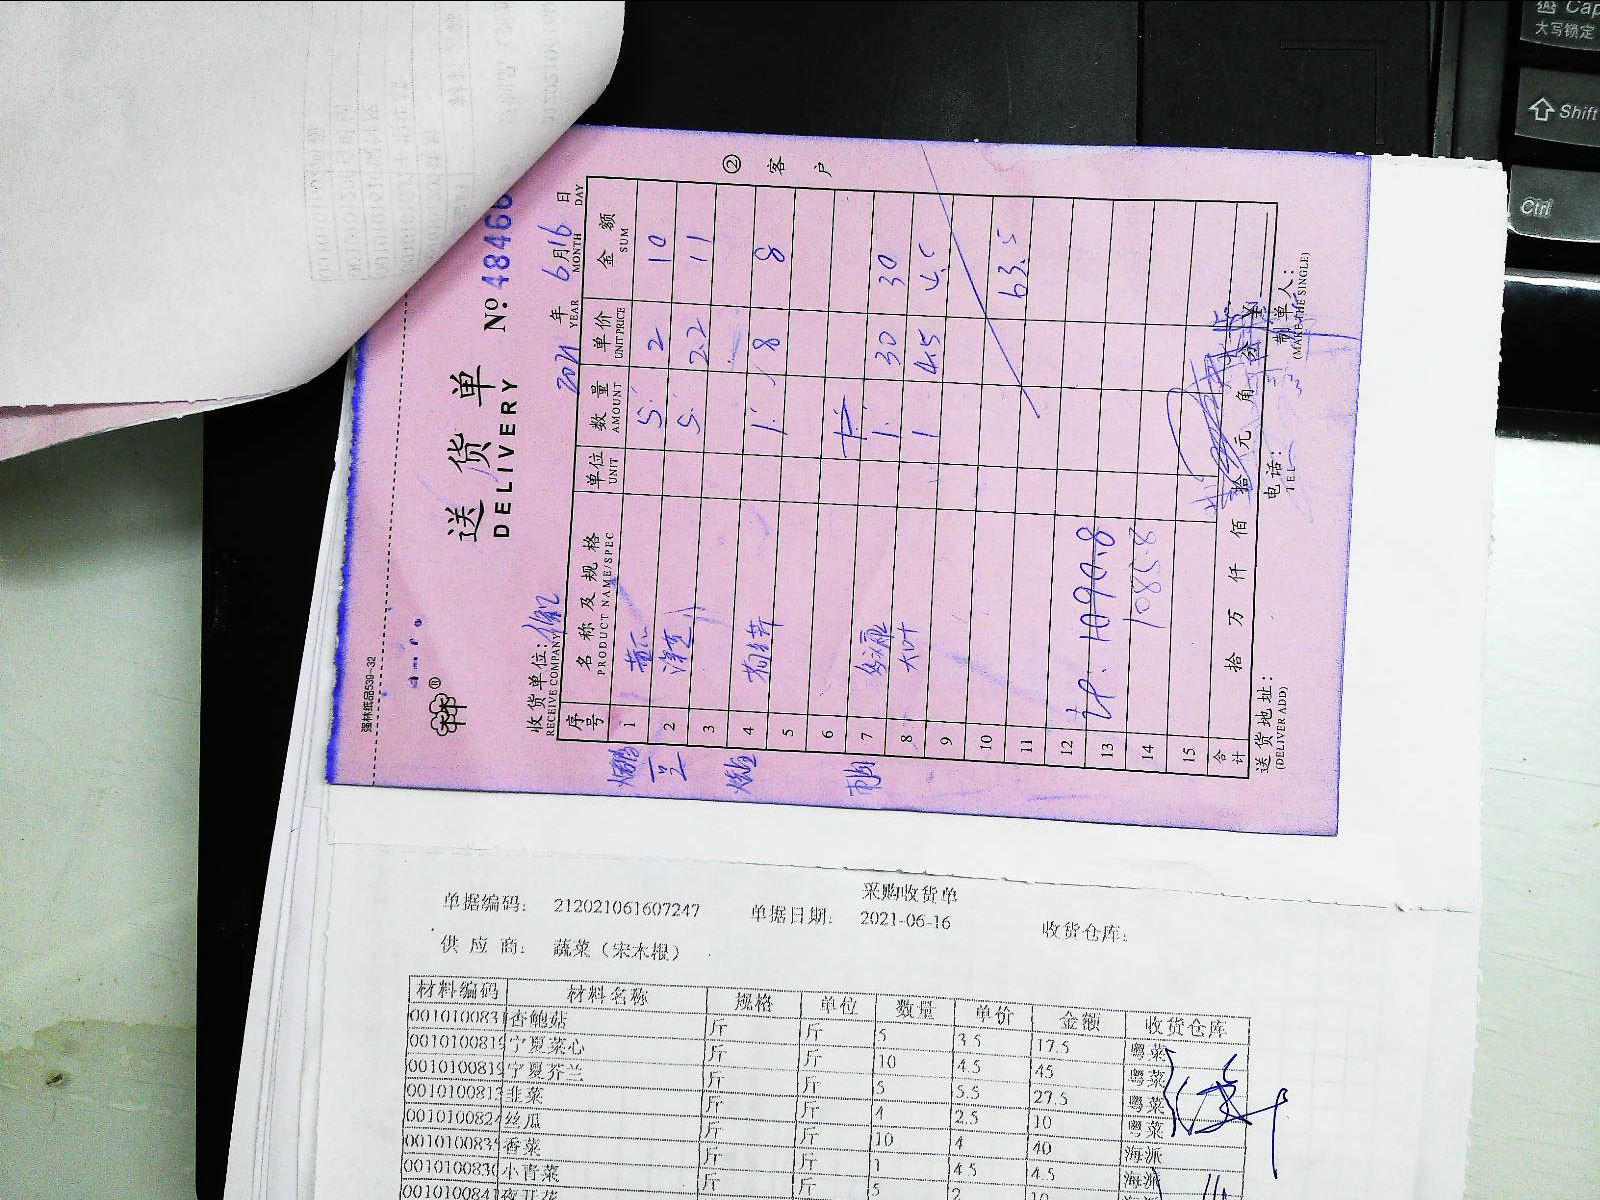 Cap
大写锁定
Shift
Ctrl
强林纸品539-32
送货单
DELIVERY
№ 48466
② 客户
收货单位：
RECEIVE COMPANY
2021 年 6 月 16 日
YEAR MONTH DAY
序号 名称及规格 单位 数量 单价 金额
PRODUCT NAME/SPEC UNIT AMOUNT UNIT PRICE SUM
1 黄瓜 5 2 10
2 5 2.2 11
3
4 1 8 8
5
6
7 1 30 30
8 大叶 1 4.5 4.5
9
10
11 63.5
12
13 1090.8
14 1085.8
15
合计 拾 万 仟 佰 拾 元 角 分
送货地址：
(DELIVER ADD)
电话：
TEL
制单人：
(MAKE THE SINGLE)
采购收货单
单据编码： 212021061607247 单据日期： 2021-06-16 收货仓库：
供应商： 蔬菜（宋木根）
材料编码 材料名称 规格 单位 数量 单价 金额 收货仓库
001010083 杏鲍菇 斤 斤 5 3.5 17.5 粤菜
001010081 宁夏菜心 斤 斤 10 4.5 45 粤菜
001010081 宁夏芥兰 斤 斤 5 5.5 27.5 粤菜
001010081 韭菜 斤 斤 4 2.5 10 粤菜
001010082 丝瓜 斤 斤 10 4 40 海派
001010083 香菜 斤 斤 1 4.5 4.5 海派
001010083 小青菜 斤 斤 5 2 10
001010084 夜开花